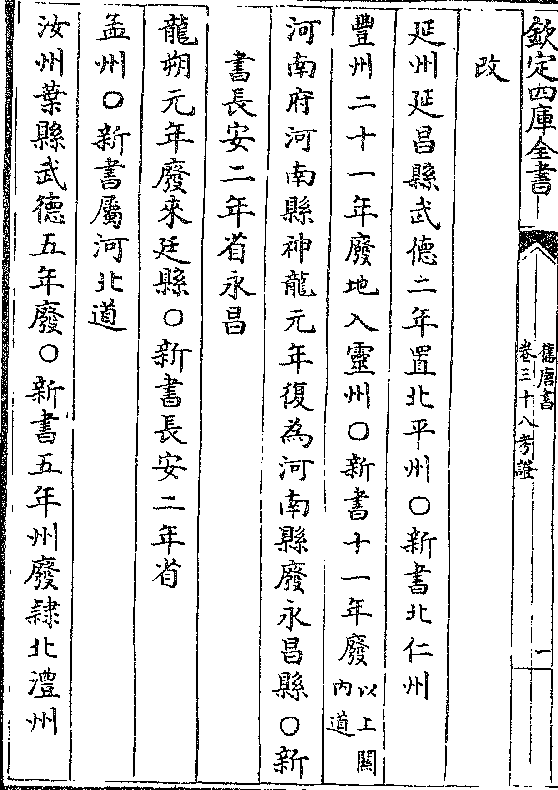 欽定四庫全書
舊唐書
卷三十八考證
一
改
延州延昌縣武德二年置北平州○新書北仁州
豐州二十一年廢地入靈州○新書十一年廢以上關
內道
河南府河南縣神龍元年復為河南縣廢永昌縣○新
書長安二年省永昌
龍朔元年廢來廷縣○新書長安二年省
孟州○新書屬河北道
汝州葉縣武德五年廢○新書五年州廢隷北澧州